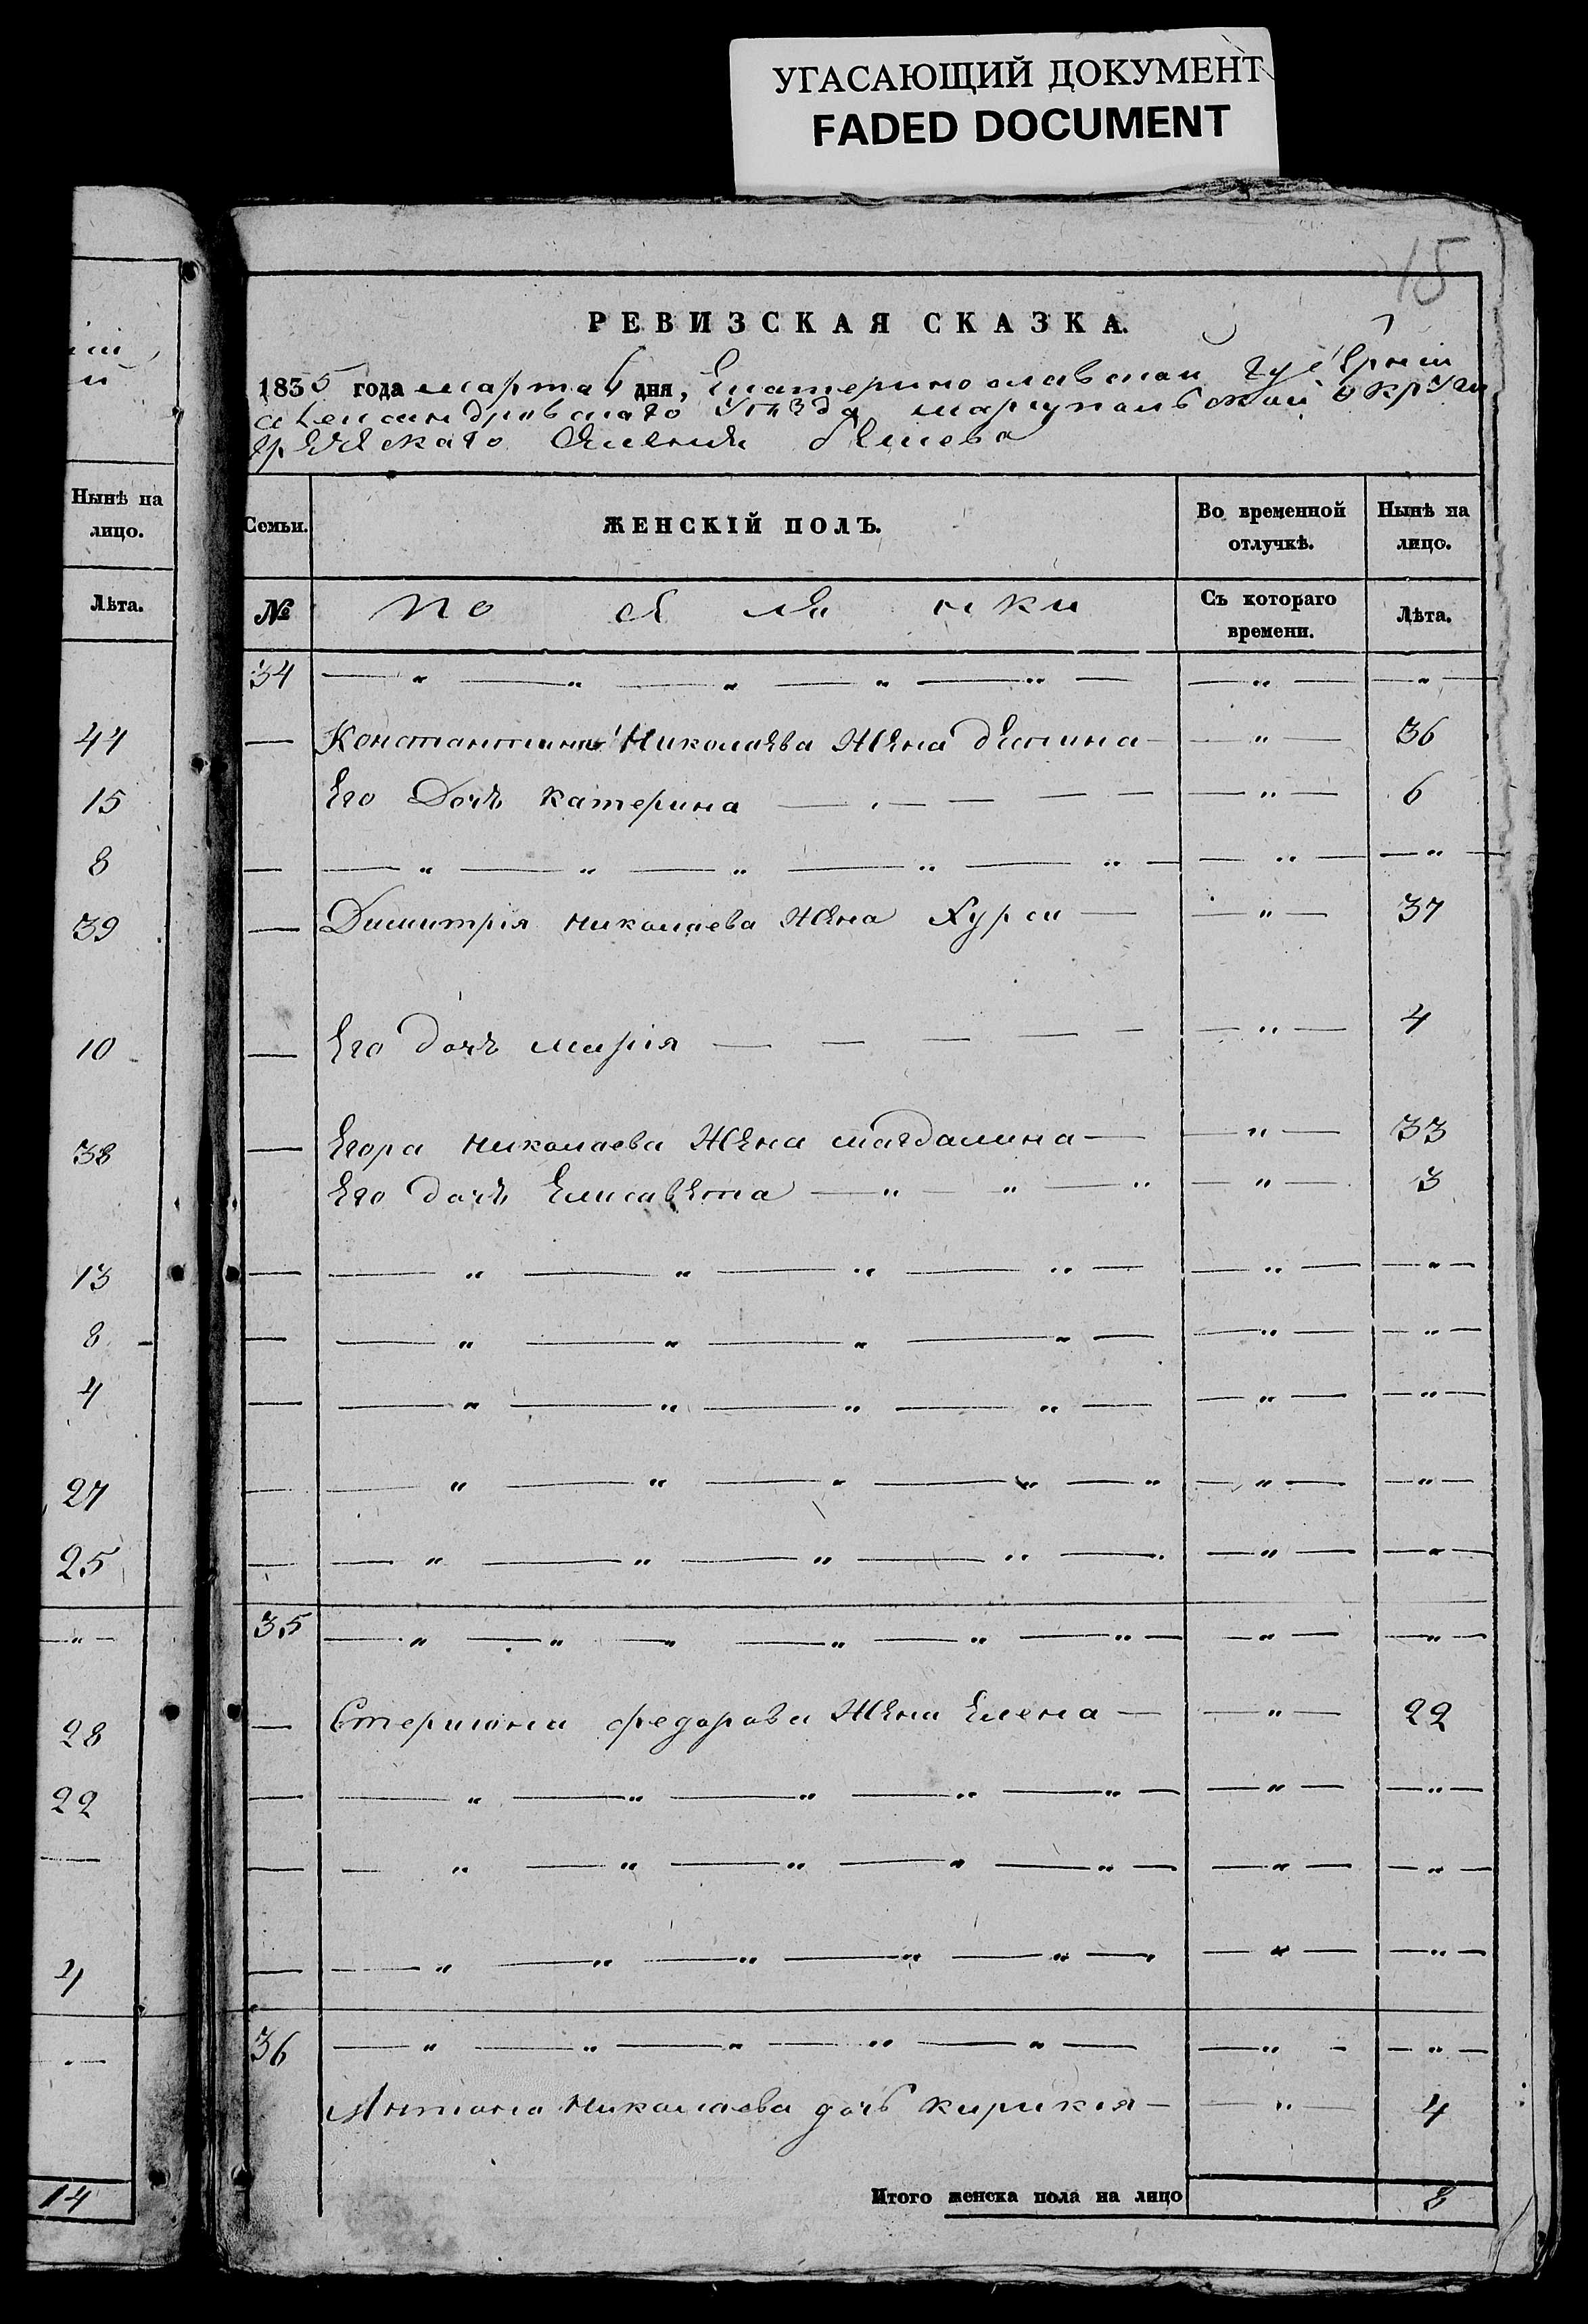 УГАСАЮЩИЙ ДОКУМЕНТ
FADED DOCUMENT
15
РЕВИЗСКАЯ СКАЗКА.
1835 года марта 6 дня, Екатеринославской Губерніи
александровскаго уѣзда мариупольской округи
греческаго селенія бешева
Нынѣ на лицо.
Лѣта.
44
15
8
39
10
38
13
8
4
27
25
28
22
4
14
Семьи.
ЖЕНСКІЙ ПОЛЪ.
Во временной отлучкѣ.
Нынѣ на лицо.
№
поселянки
Съ котораго времени.
Лѣта.
34
Константина Николаева Жена 36
Его Дочь Катерина 6
Димитрія николаева Жена 37
Его дочь марія 4
Егора николаева Жена магдалина 33
Его дочь Елисавета 3
35
федорова Жена Елена 22
36
Антона николаева дочь кирикія 4
Итого женска пола на лицо 8